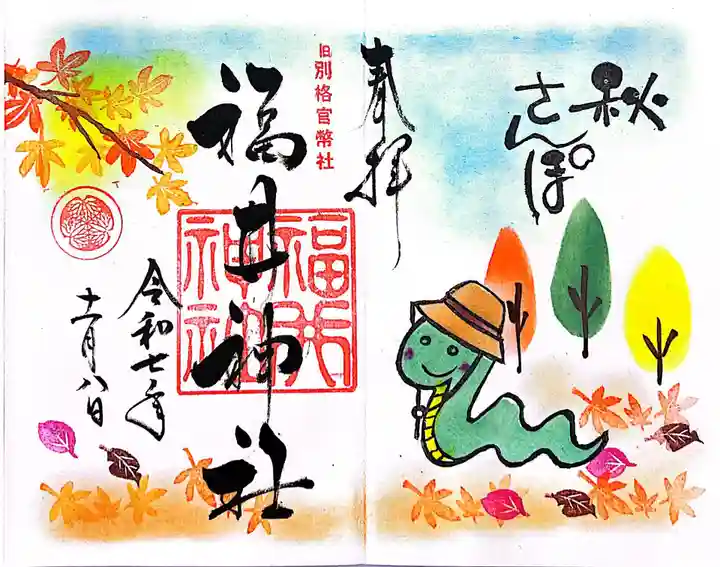 秋
さんぽ
奉拝
旧別格官幣社
福井神社
福井神社
令和七年
十一月八日